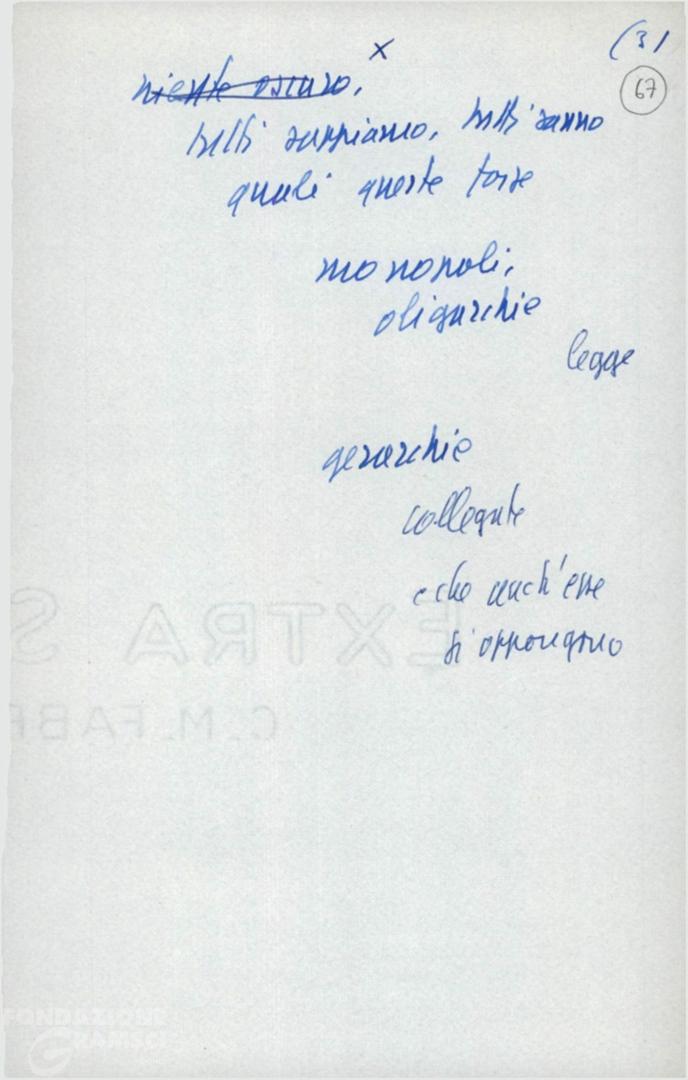 x
(3)
67
niente oscuro,
tutti sappiamo, tutti sanno
quali queste forze
monopoli,
oligarchie
legge
gerarchie
collegate
e che anch'esse
si oppongono
EXTRA S
C. M. FABR
FONDAZIONE
GRAMSCI